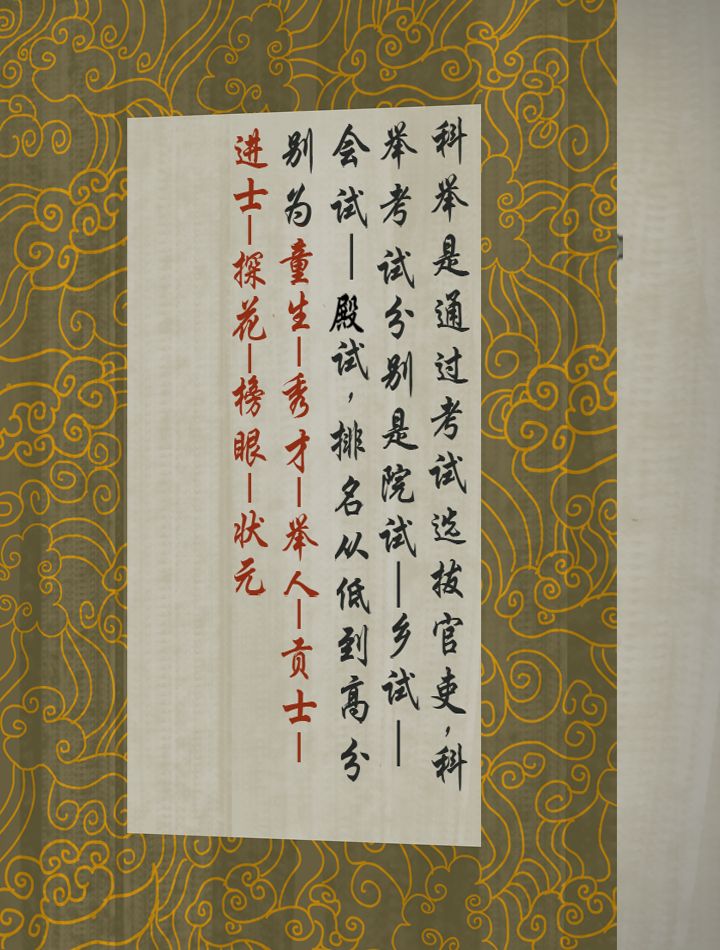 科举是通过考试选拔官吏，科
举考试分别是院试—乡试—
会试—殿试，排名从低到高分
别为童生—秀才—举人—贡士—
进士—探花—榜眼—状元